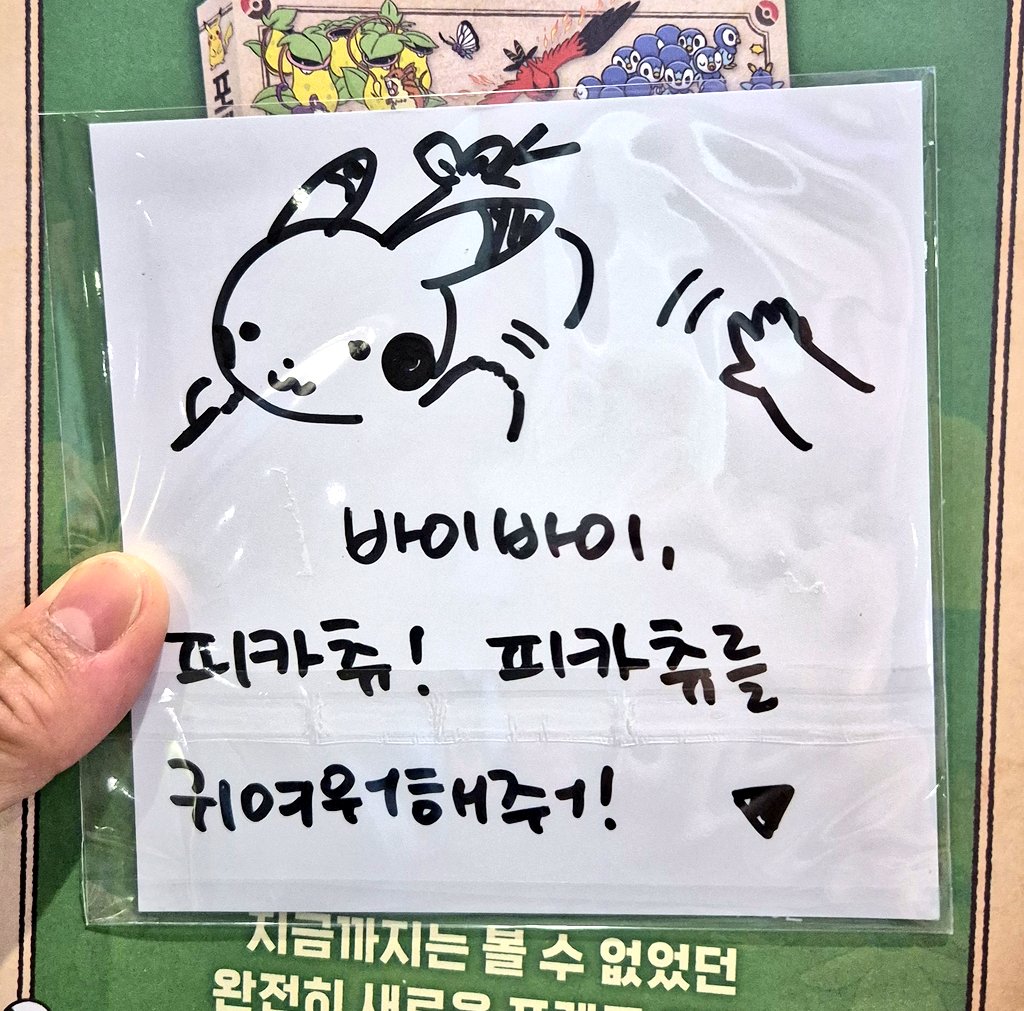 바이바이,
피카츄! 피카츄를
귀여워해주어!
지금까지는 볼 수 없었던
완전히 새로운